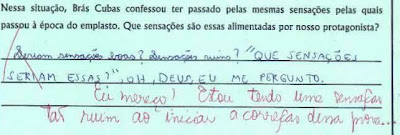 Nessa situação, Brás Cubas confessou ter passado pelas mesmas sensações pelas quais
passou à época do emplasto. Que sensações são essas alimentadas por nosso protagonista?
Seriam sensações boas? Sensações ruins? "QUE SENSAÇÕES
SERIAM ESSAS?", OH, DEUS, EU ME PERGUNTO.
Eu mereço! Estou tendo uma sensação
tão ruim ao iniciar a correção dessa prova...